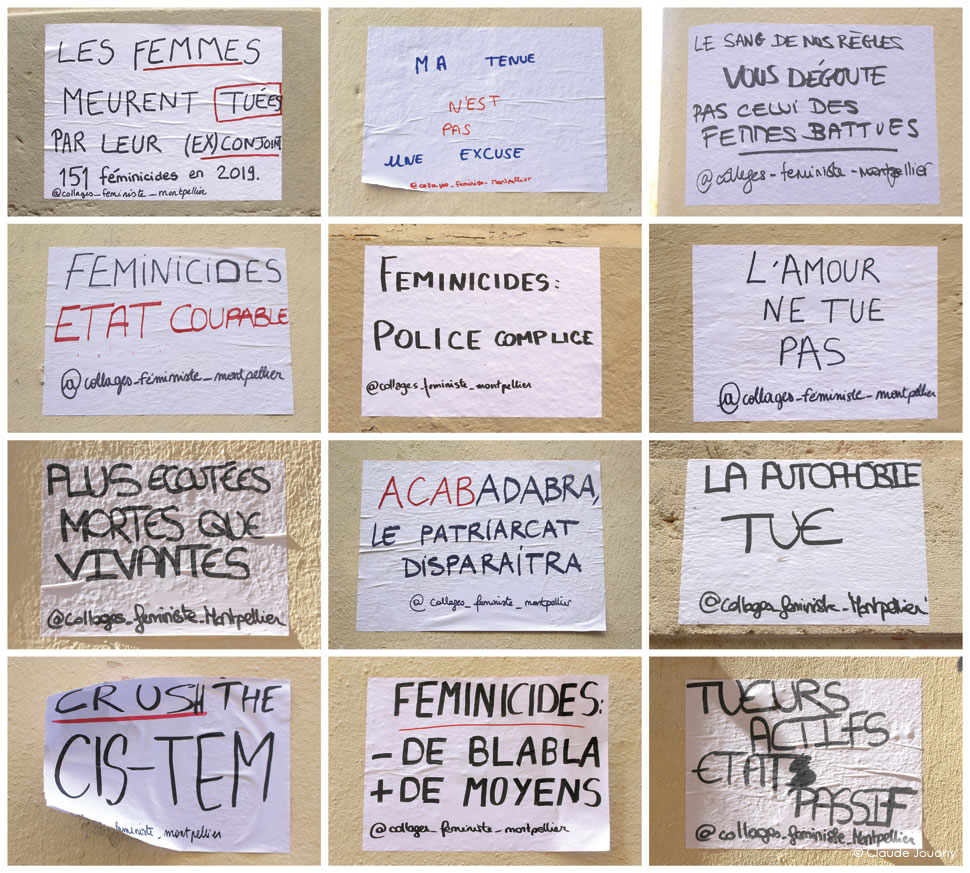 LES FEMMES
MEURENT TUÉES
PAR LEUR (EX)CONJOINT
151 féminicides en 2019.
@collages_féministe_montpellier
MA TENUE
N'EST
PAS
UNE EXCUSE
@collages_féministe_Montpellier
LE SANG DE NOS RÈGLES
VOUS DÉGOUTE
PAS CELUI DES
FEMMES BATTUES
@collages-feministe-montpellier
FEMINICIDES
ETAT COUPABLE
@collages_féministe_montpellier
FEMINICIDES:
POLICE COMPLICE
@collages_feministe_montpellier
L'AMOUR
NE TUE
PAS
@collages_féministe_montpellier
PLUS ECOUTÉES
MORTES QUE
VIVANTES
@collages_feministe_Montpellier
ACABADABRA,
LE PATRIARCAT
DISPARAÎTRA
@collages_feministe_montpellier
LA PUTOPHOBIE
TUE
@collages_feministe_Montpellier
CRUSH THE
CIS-TEM
feministe_montpellier
FEMINICIDES:
- DE BLABLA
+ DE MOYENS
@collages_feministe_montpellier
TUEURS
ACTIFS
ETAT
PASSIF
@collages_feministe_Montpellier
© Claude Jouany